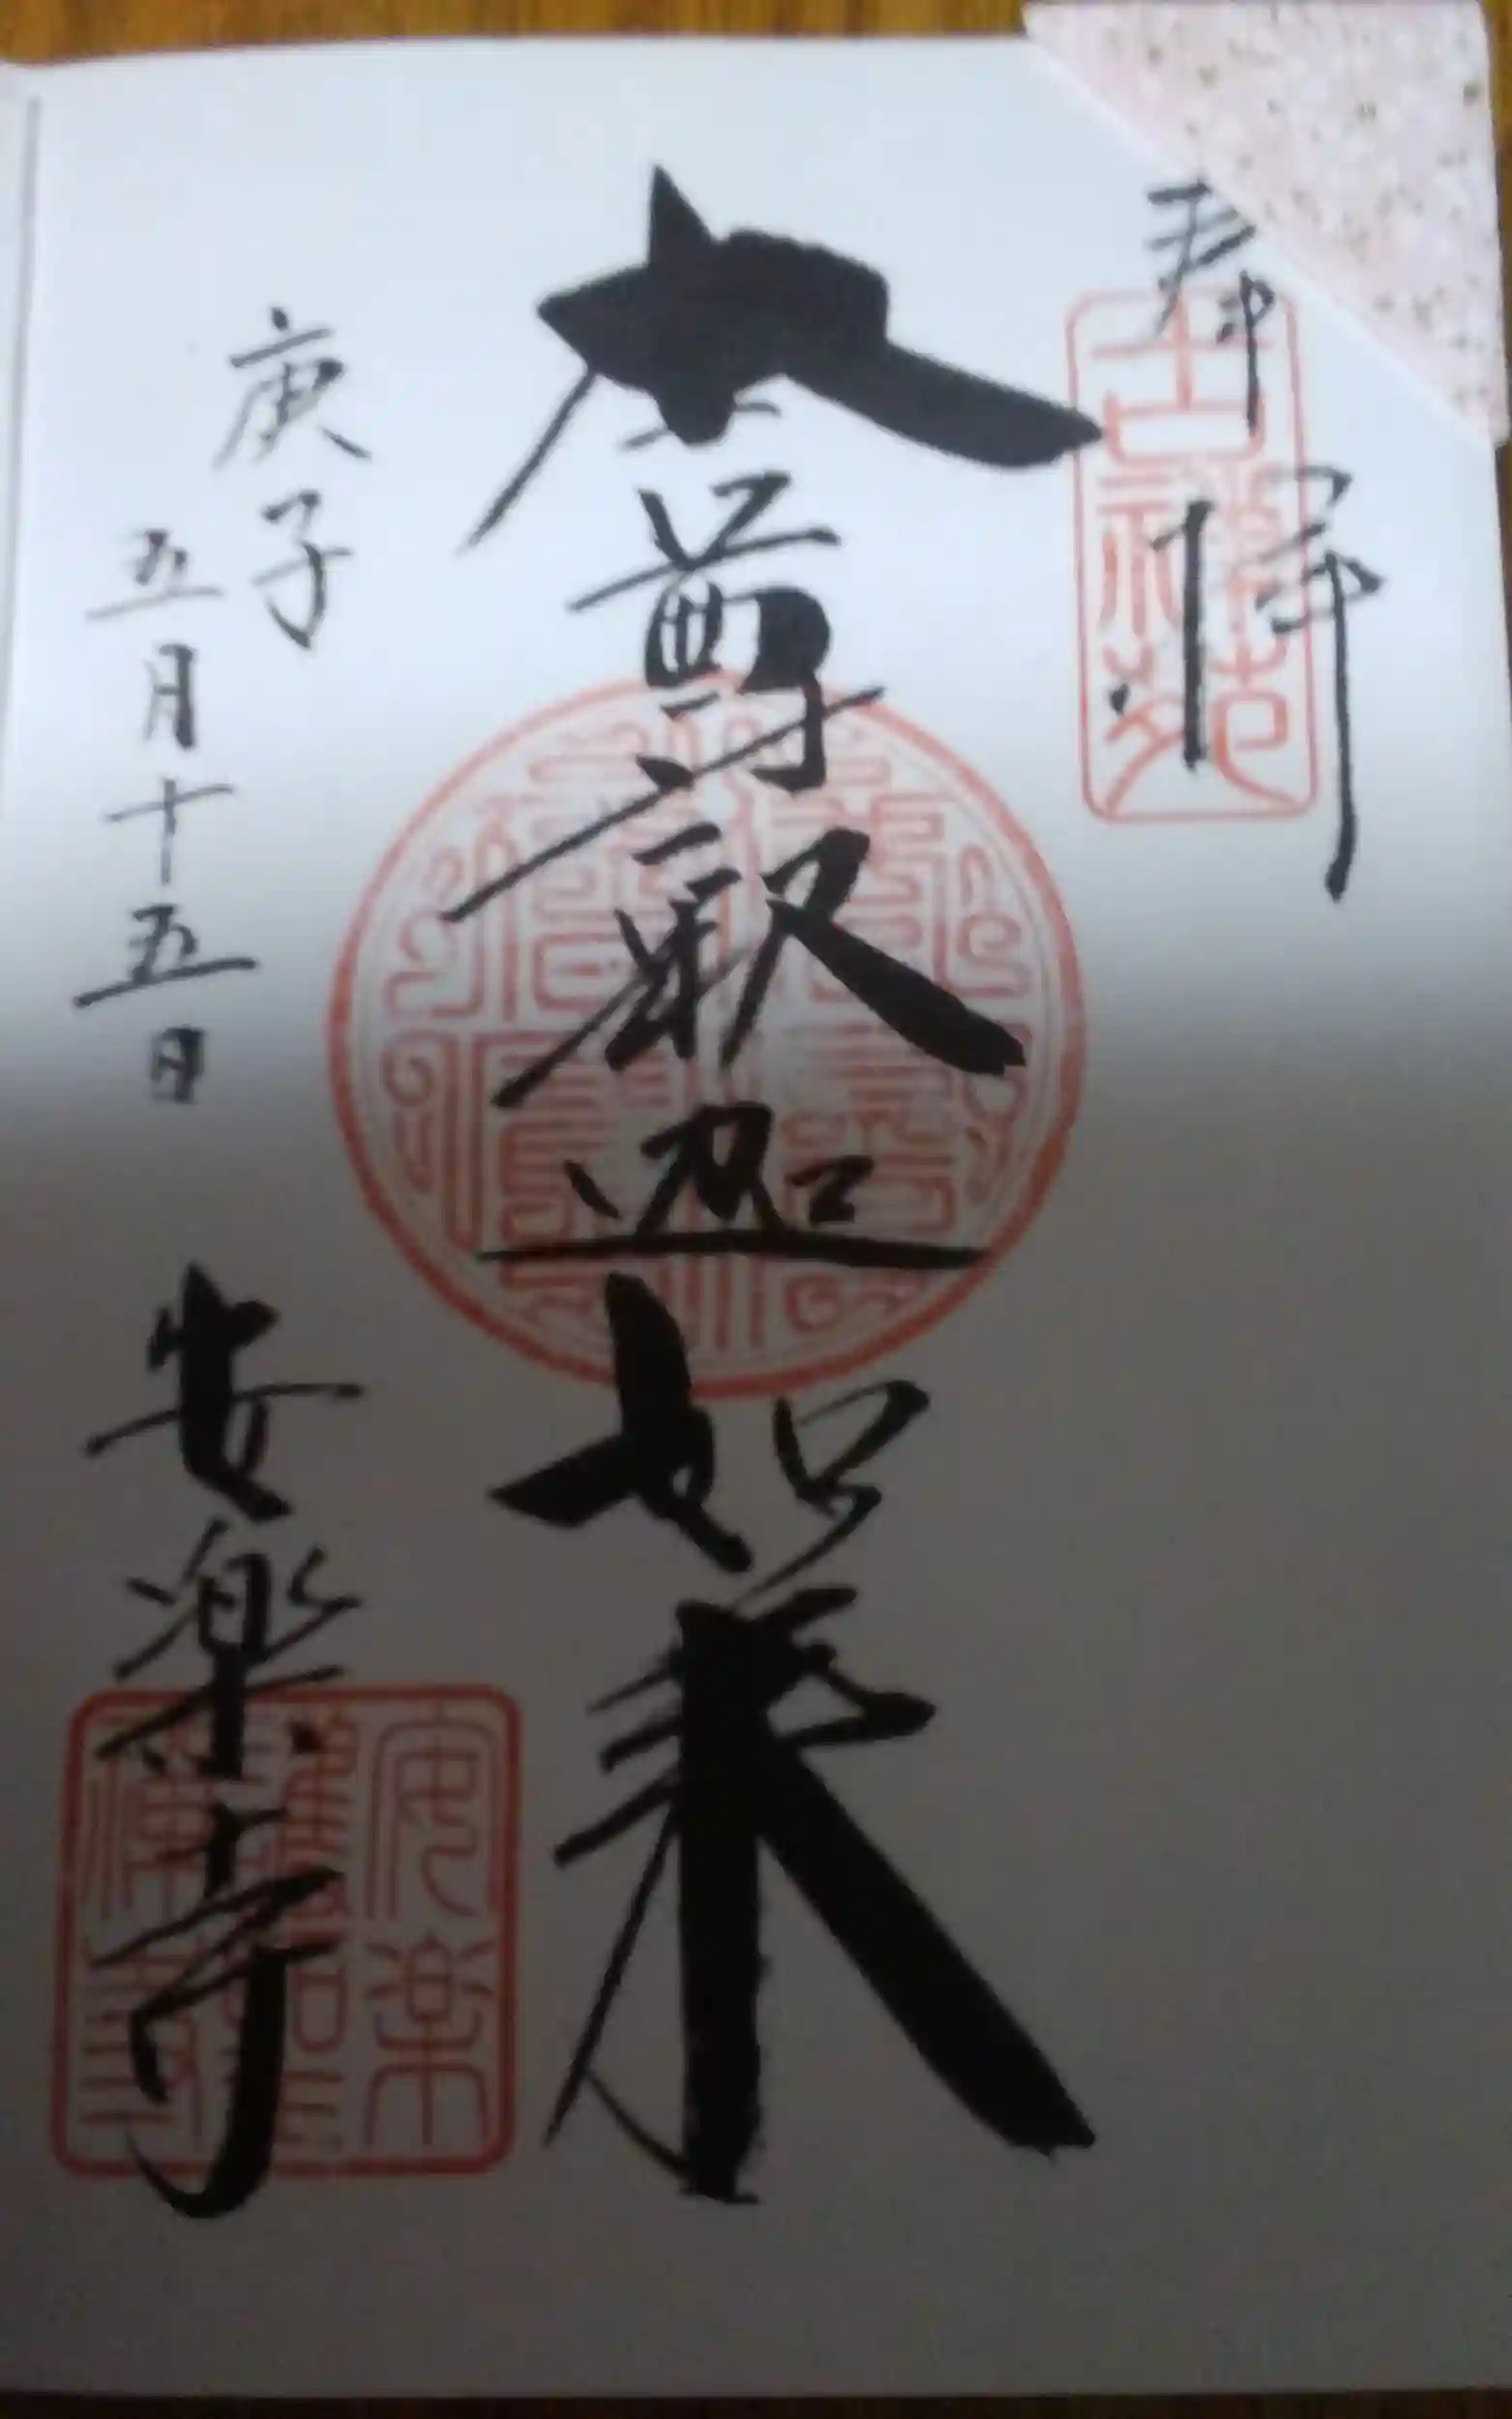 奉拝
古禅苑
本尊釈迦如来
庚子
五月十五日
安楽寺
安楽
護聖
禅寺